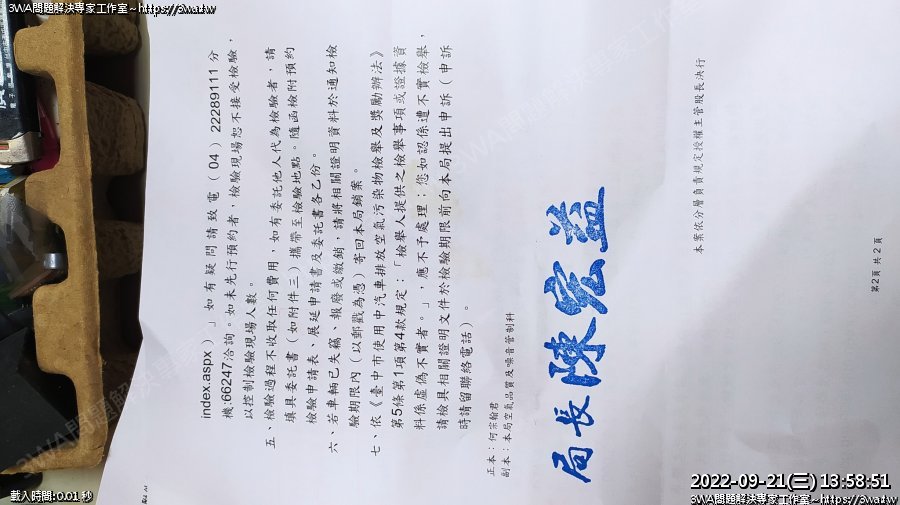 3WA問題解決專家工作室~https://3wa.tw
index.aspx）」如有疑問請致電（04）22289111分
機:66247洽詢。如未先行預約者，檢驗現場恕不接受檢驗，
以控制檢驗現場人數。
五、檢驗過程不收取任何費用，如有委託他人代為檢驗者，請
填具委託書（如附件三）攜帶至檢驗地點。隨函檢附預約
檢驗申請表、展延申請書及委託書各乙份。
六、若車輛已失竊、報廢或繳銷，請將相關證明資料於通知檢
驗期限內（以郵戳為憑）寄回本局銷案。
七、依《臺中市使用中汽車排放空氣污染物檢舉及獎勵辦法》
第5條第1項第4款規定：「檢舉人提供之檢舉事項或證據資
料係虛偽不實者。」，應不予處理；您如認係遭不實檢舉，
請檢具相關證明文件於檢驗期限前向本局提出申訴（申訴
時請留聯絡電話）。
正本：何宗翰君
副本：本局空氣品質及噪音管制科
局長陳宏益
本案依分層負責規定授權主管股長決行
第2頁 共2頁
載入時間:0.01 秒
2022-09-21(三) 13:58:51
3WA問題解決專家工作室~https://3wa.tw